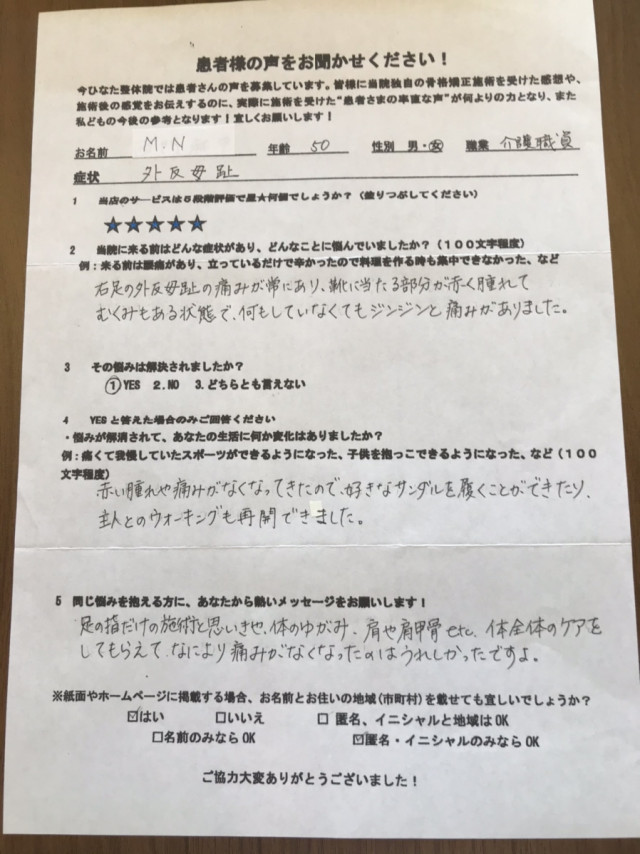 患者様の声をお聞かせください！
今ひなた整体院では患者さんの声を募集しています。皆様に当院独自の骨格矯正施術を受けた感想や、
施術後の感覚をお伝えするのに、実際に施術を受けた“患者さまの率直な声”が何よりの力となり、また
私どもの今後の参考となります！宜しくお願いします！
お名前 M.N 年齢 50 性別 男・女 職業 介護職員
症状 外反母趾
1 当店のサービスは5段階評価で星★何個でしょうか？（塗りつぶしてください）
★★★★★
2 当院に来る前はどんな症状があり、どんなことに悩んでいましたか？（１００文字程度）
例：来る前は腰痛があり、立っているだけで辛かったので料理を作る時も集中できなかった、など
右足の外反母趾の痛みが常にあり、靴に当たる部分が赤く腫れて
むくみもある状態で、何もしていなくてもジンジンと痛みがありました。
3 その悩みは解決されましたか？
①YES 2.NO 3.どちらとも言えない
4 YESと答えた場合のみご回答ください
・悩みが解消されて、あなたの生活に何か変化はありましたか？
例：痛くて我慢していたスポーツができるようになった、子供を抱っこできるようになった、など（１００
文字程度）
赤い腫れや痛みがなくなってきたので、好きなサンダルを履くことができたり、
主人とのウォーキングも再開できました。
5 同じ悩みを抱える方に、あなたから熱いメッセージをお願いします！
足の指だけの施術と思いきや、体のゆがみ、肩や肩甲骨etc、体全体のケアを
してもらえて、なにより痛みがなくなったのはうれしかったですよ。
※紙面やホームページに掲載する場合、お名前とお住いの地域（市町村）を載せても宜しいでしょうか？
☑はい □いいえ □ 匿名、イニシャルと地域はOK
□名前のみならOK ☑匿名・イニシャルのみならOK
ご協力大変ありがとうございました！